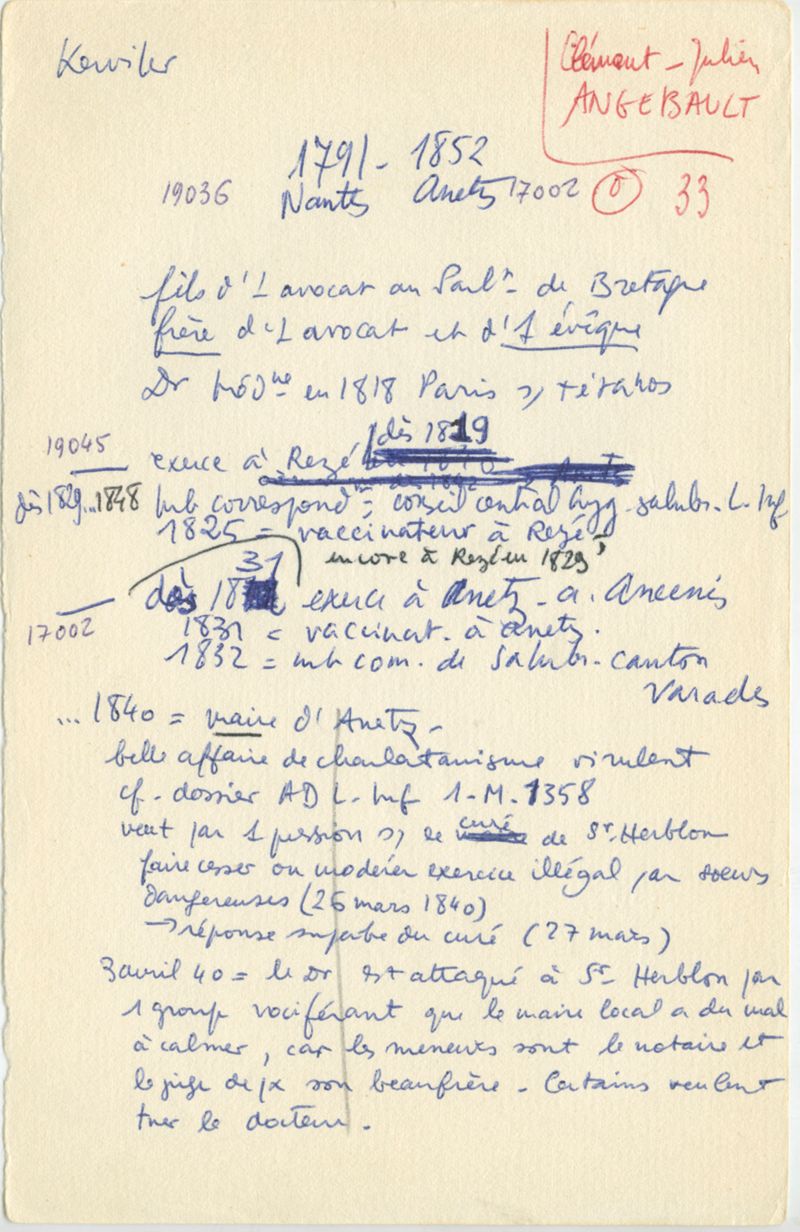 Kerviler
Clément - Julien
ANGEBAULT
1791 - 1852
19036 Nantes Anetz 17002 33
fils d'1 avocat au Parlt de Bretagne
frère d'1 avocat et d'1 évêque
Dr Méd.ne en 1818 Paris s/ tétanos
19045
dès 1819
exerce à Rezé
dès 1829...1848 mb correspond.nt = conseil central hyg. salubr. L. Inf
1825 = vaccinateur à Rezé
encore à Rezé en 1829
31
dès 18 exerce à Anetz - a. Ancenis
17002
1831 = vaccinat. à Anetz.
1832 = mb com. de salubr. canton
Varades
... 1840 = maire d'Anetz -
belle affaire de charlatanisme virulent
cf. dossier AD L. Inf 1-M-1358
veut par 1 pression s/ le curé de St. Herblon
faire cesser ou modérer exercice illégal par soeurs
dangereuses (26 mars 1840)
→ réponse superbe du curé (27 mars)
3 avril 40 = le Dr est attaqué à St- Herblon par
1 group vociférant que le maire local a du mal
à calmer, car les meneurs sont le notaire et
le juge de px son beaufrère - Certains veulent
tuer le docteur.